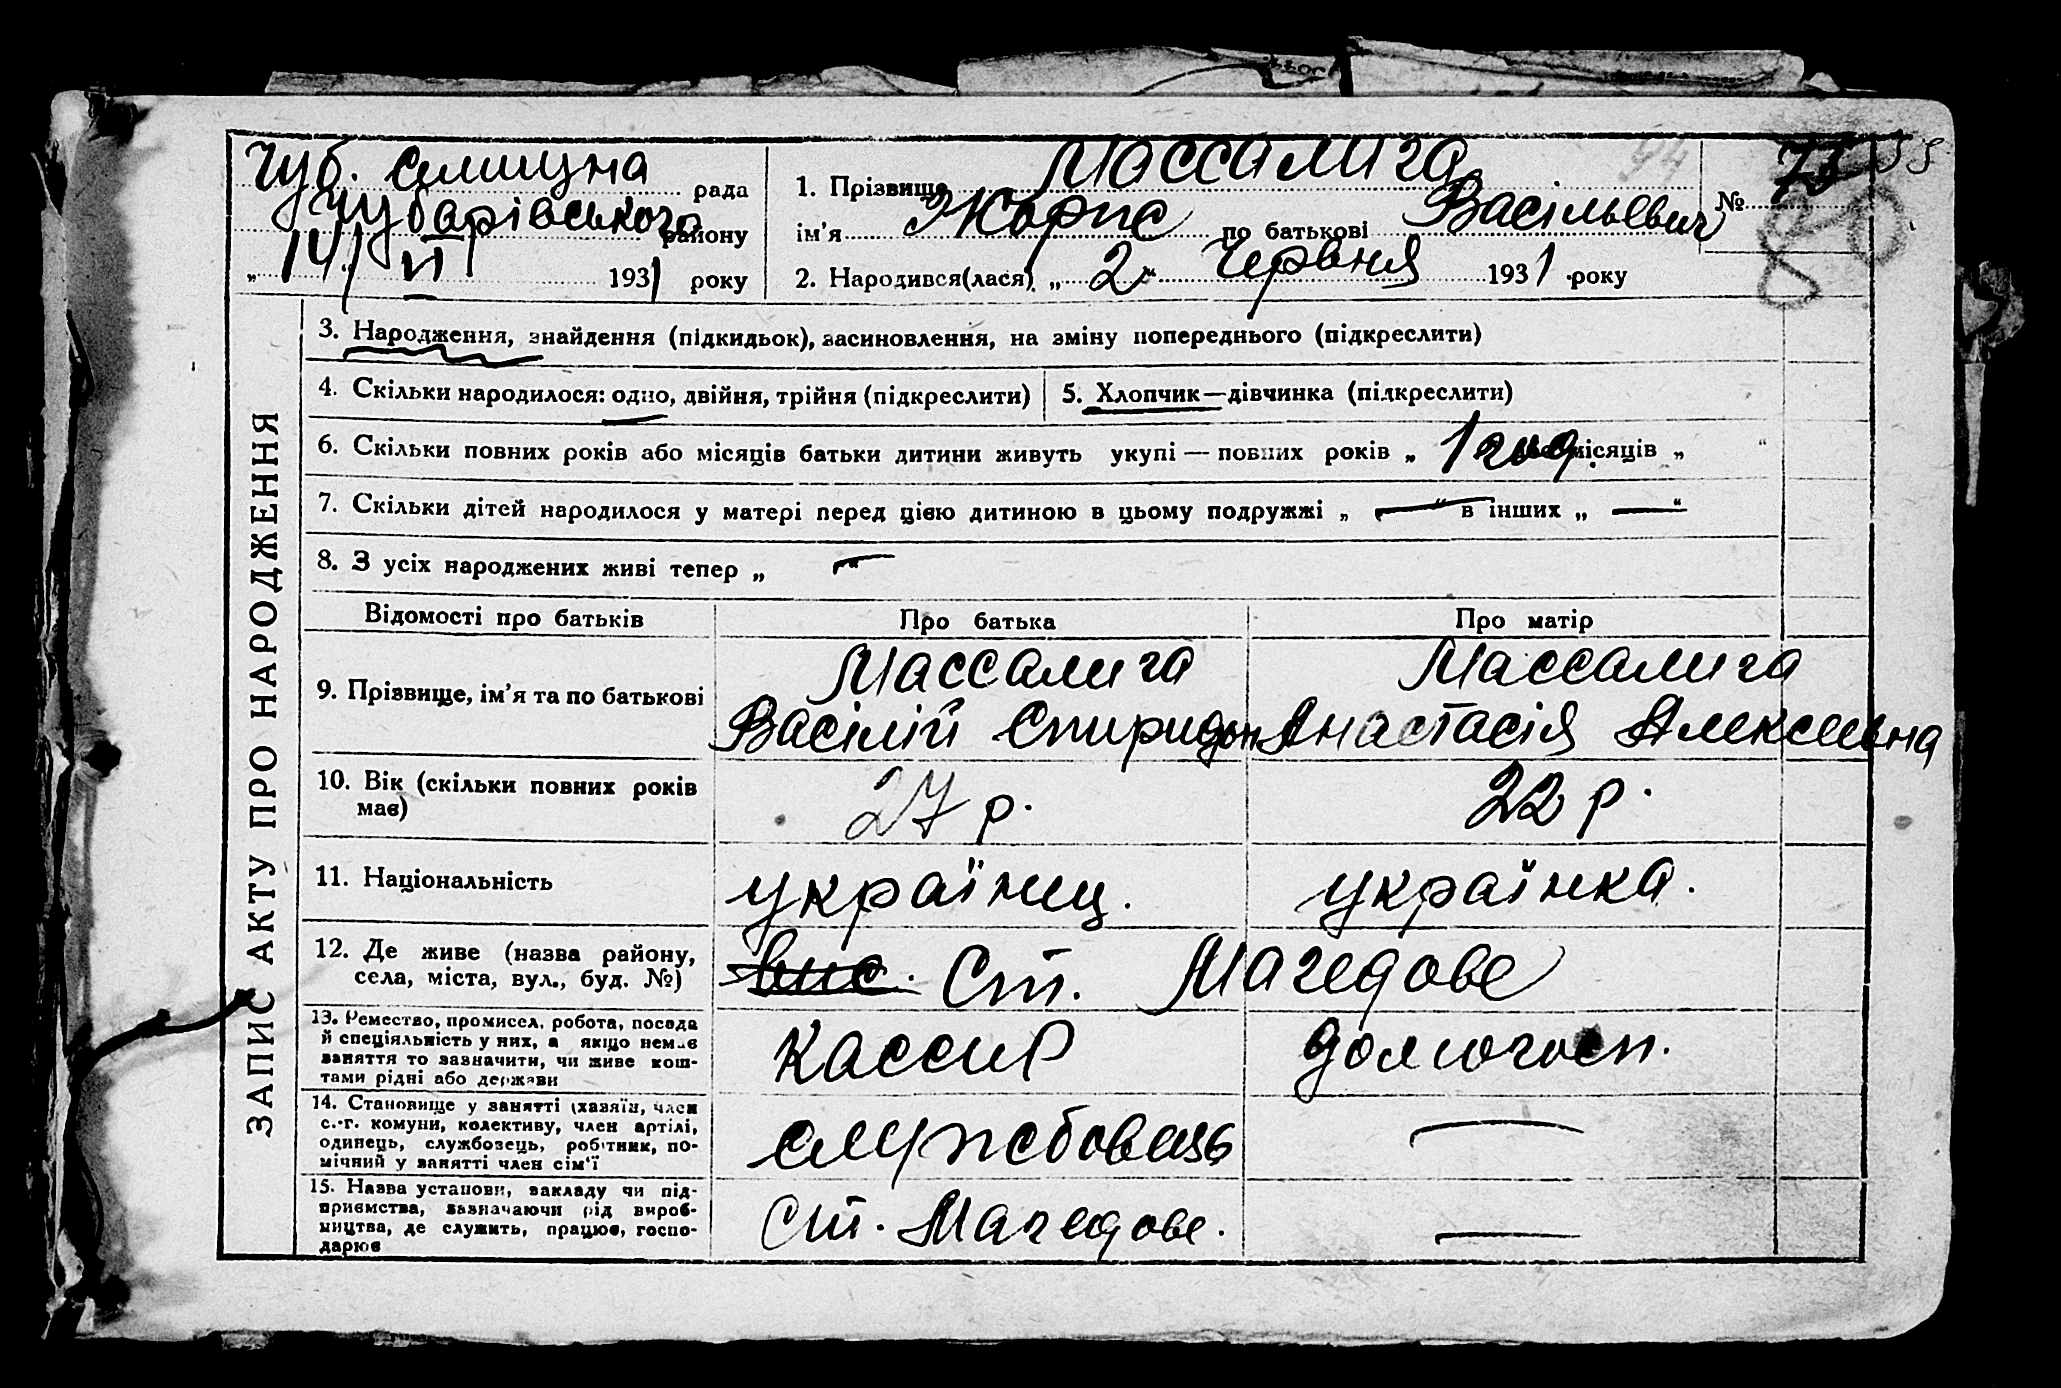 Чуб. селищна рада
Чубарівського району
„ 14/VI 1931 року
1. Прізвище Массалига
ім’я Жорж по батькові Васільевич
2. Народився(лася) „ 2 “ Червня 1931 року
№ 73
94
ЗАПИС АКТУ ПРО НАРОДЖЕННЯ
3. Народження, знайдення (підкидьок), засиновлення, на зміну попереднього (підкреслити)
4. Скільки народилося: одно, двійня, трійня (підкреслити)
5. Хлопчик—дівчинка (підкреслити)
6. Скільки повних років або місяців батьки дитини живуть укупі — повних років „ 1 год. місяців „ “
7. Скільки дітей народилося у матері перед цією дитиною в цьому подружжі „ — “ в інших „ — “
8. З усіх народжених живі тепер „ — “
Відомості про батьків Про батька Про матір
9. Прізвище, ім’я та по батькові
Массалига
Васілій Спиридон
Массалига
Анастасія Алексеевна
10. Вік (скільки повних років
має)
27 р.
22 р.
11. Національність
українец.
українка.
12. Де живе (назва району,
села, міста, вул., буд. №)
ст. Магедове
13. Ремество, промисел, робота, посада
й спеціяльність у них, а якщо немає
заняття то зазначити, чи живе кош-
тами рідні або держави
Кассир
домогосп.
14. Становище у занятті (хазяїн, член
с.-г. комуни, колективу, член артілі,
одинець, службовець, робітник, по-
мічний у занятті член сім’ї
службовець
—
15. Назва установи, закладу чи під-
приємства, зазначаючи рід вироб-
ництва, де служить, працює, госпо-
дарює
ст. Магедове.
—